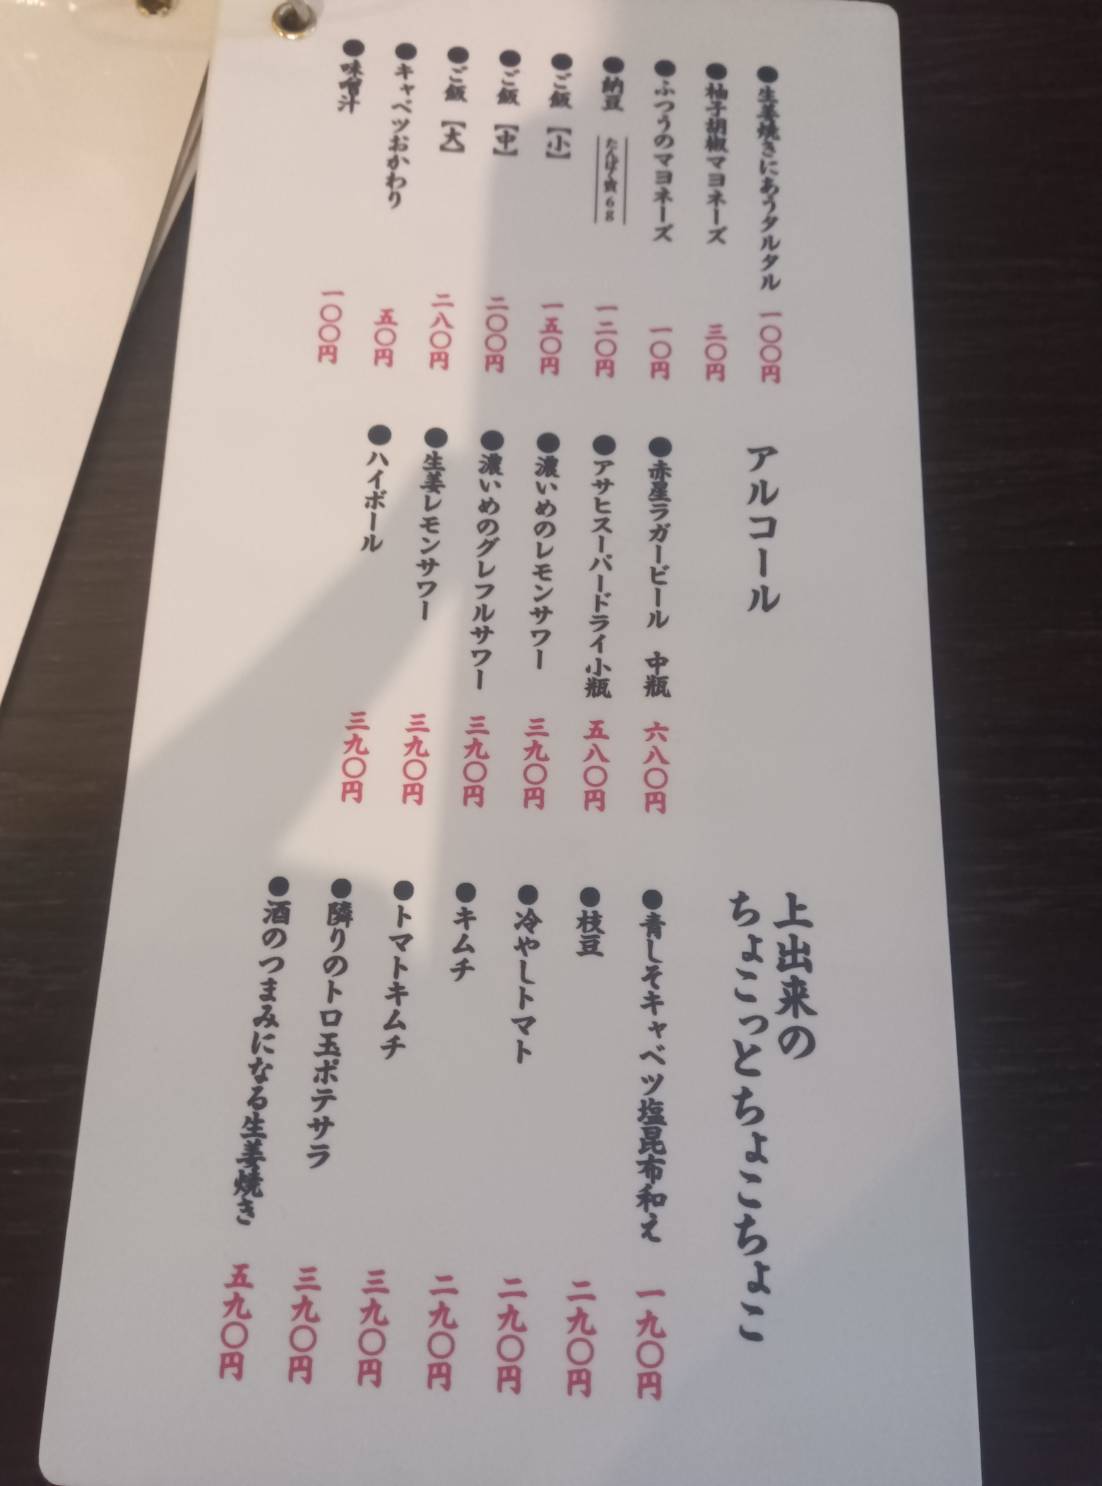 ●生姜焼きにあうタルタル 一〇〇円
●柚子胡椒マヨネーズ 三〇円
●ふつうのマヨネーズ 一〇円
●納豆 たんぱく質6g 一二〇円
●ご飯【小】 一五〇円
●ご飯【中】 二〇〇円
●ご飯【大】 二八〇円
●キャベツおかわり 五〇円
●味噌汁 一〇〇円
アルコール
●赤星ラガービール 中瓶 六八〇円
●アサヒスーパードライ小瓶 五八〇円
●濃いめのレモンサワー 三九〇円
●濃いめのグレフルサワー 三九〇円
●生姜レモンサワー 三九〇円
●ハイボール 三九〇円
上出来の
ちょこっとちょこちょこ
●青しそキャベツ塩昆布和え 一九〇円
●枝豆 二九〇円
●冷やしトマト 二九〇円
●キムチ 二九〇円
●トマトキムチ 三九〇円
●隣りのトロ玉ポテサラ 三九〇円
●酒のつまみになる生姜焼き 五九〇円